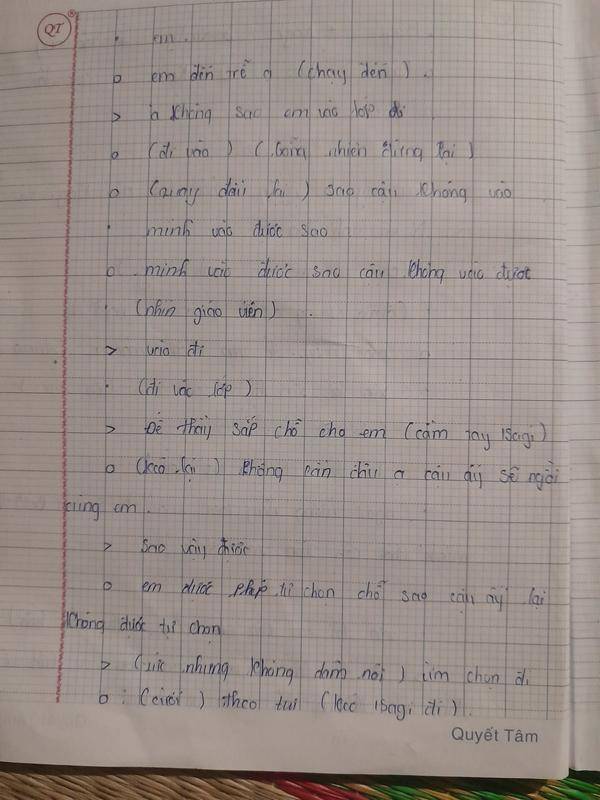 QT
· em.
o em đến trễ ạ (chạy đến).
> à không sao em vào lớp đi
o (đi vào) ( nhiên dừng lại)
o (quay đầu lại) sao cậu không vào
· mình vào được sao
o mình vào được sao cậu không vào được
· (nhìn giáo viên).
> vào đi
· (đi vào lớp)
> Để thầy sắp chỗ cho em (cầm tay ISagi)
o (kéo lại) không cần đâu ạ cậu ấy sẽ ngồi
cùng em.
> sao vậy được
o em được phép tự chọn chỗ sao cậu ấy lại
không được tự chọn
> (tức nhưng không dám nói) tìm chọn đi
o : (cười) theo tui (kéo ISagi đi).
Quyết Tâm